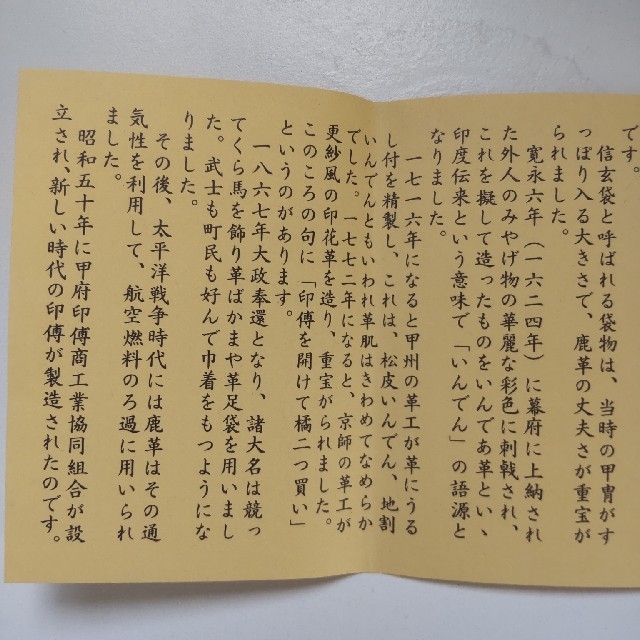 です。
信玄袋と呼ばれる袋物は、当時の甲冑がす
っぽり入る大きさで、鹿革の丈夫さが重宝が
られました。
寛永六年（一六二四年）に幕府に上納され
た外人のみやげ物の華麗な彩色に刺戟され、
これを擬して造ったものをいんであ革といゝ
印度伝来という意味で「いんでん」の語源と
なりました。
一七一六年になると甲州の革工が革にうる
し付を精製し、これは、松皮いんでん、地割
いんでんともいわれ革肌はきわめてなめらか
でした。一七七二年になると、京師の革工が
更紗風の印花革を造り、重宝がられました。
このころの句に「印傳を開けて橘二つ買い」
というのがあります。
一八六七年大政奉還となり、諸大名は競っ
てくら馬を飾り革ばかまや革足袋を用いまし
た。武士も町民も好んで巾着をもつようにな
りました。
その後、太平洋戦争時代には鹿革はその通
気性を利用して、航空燃料のろ過に用いられ
ました。
昭和五十年に甲府印傳商工業協同組合が設
立され、新しい時代の印傳が製造されたのです。